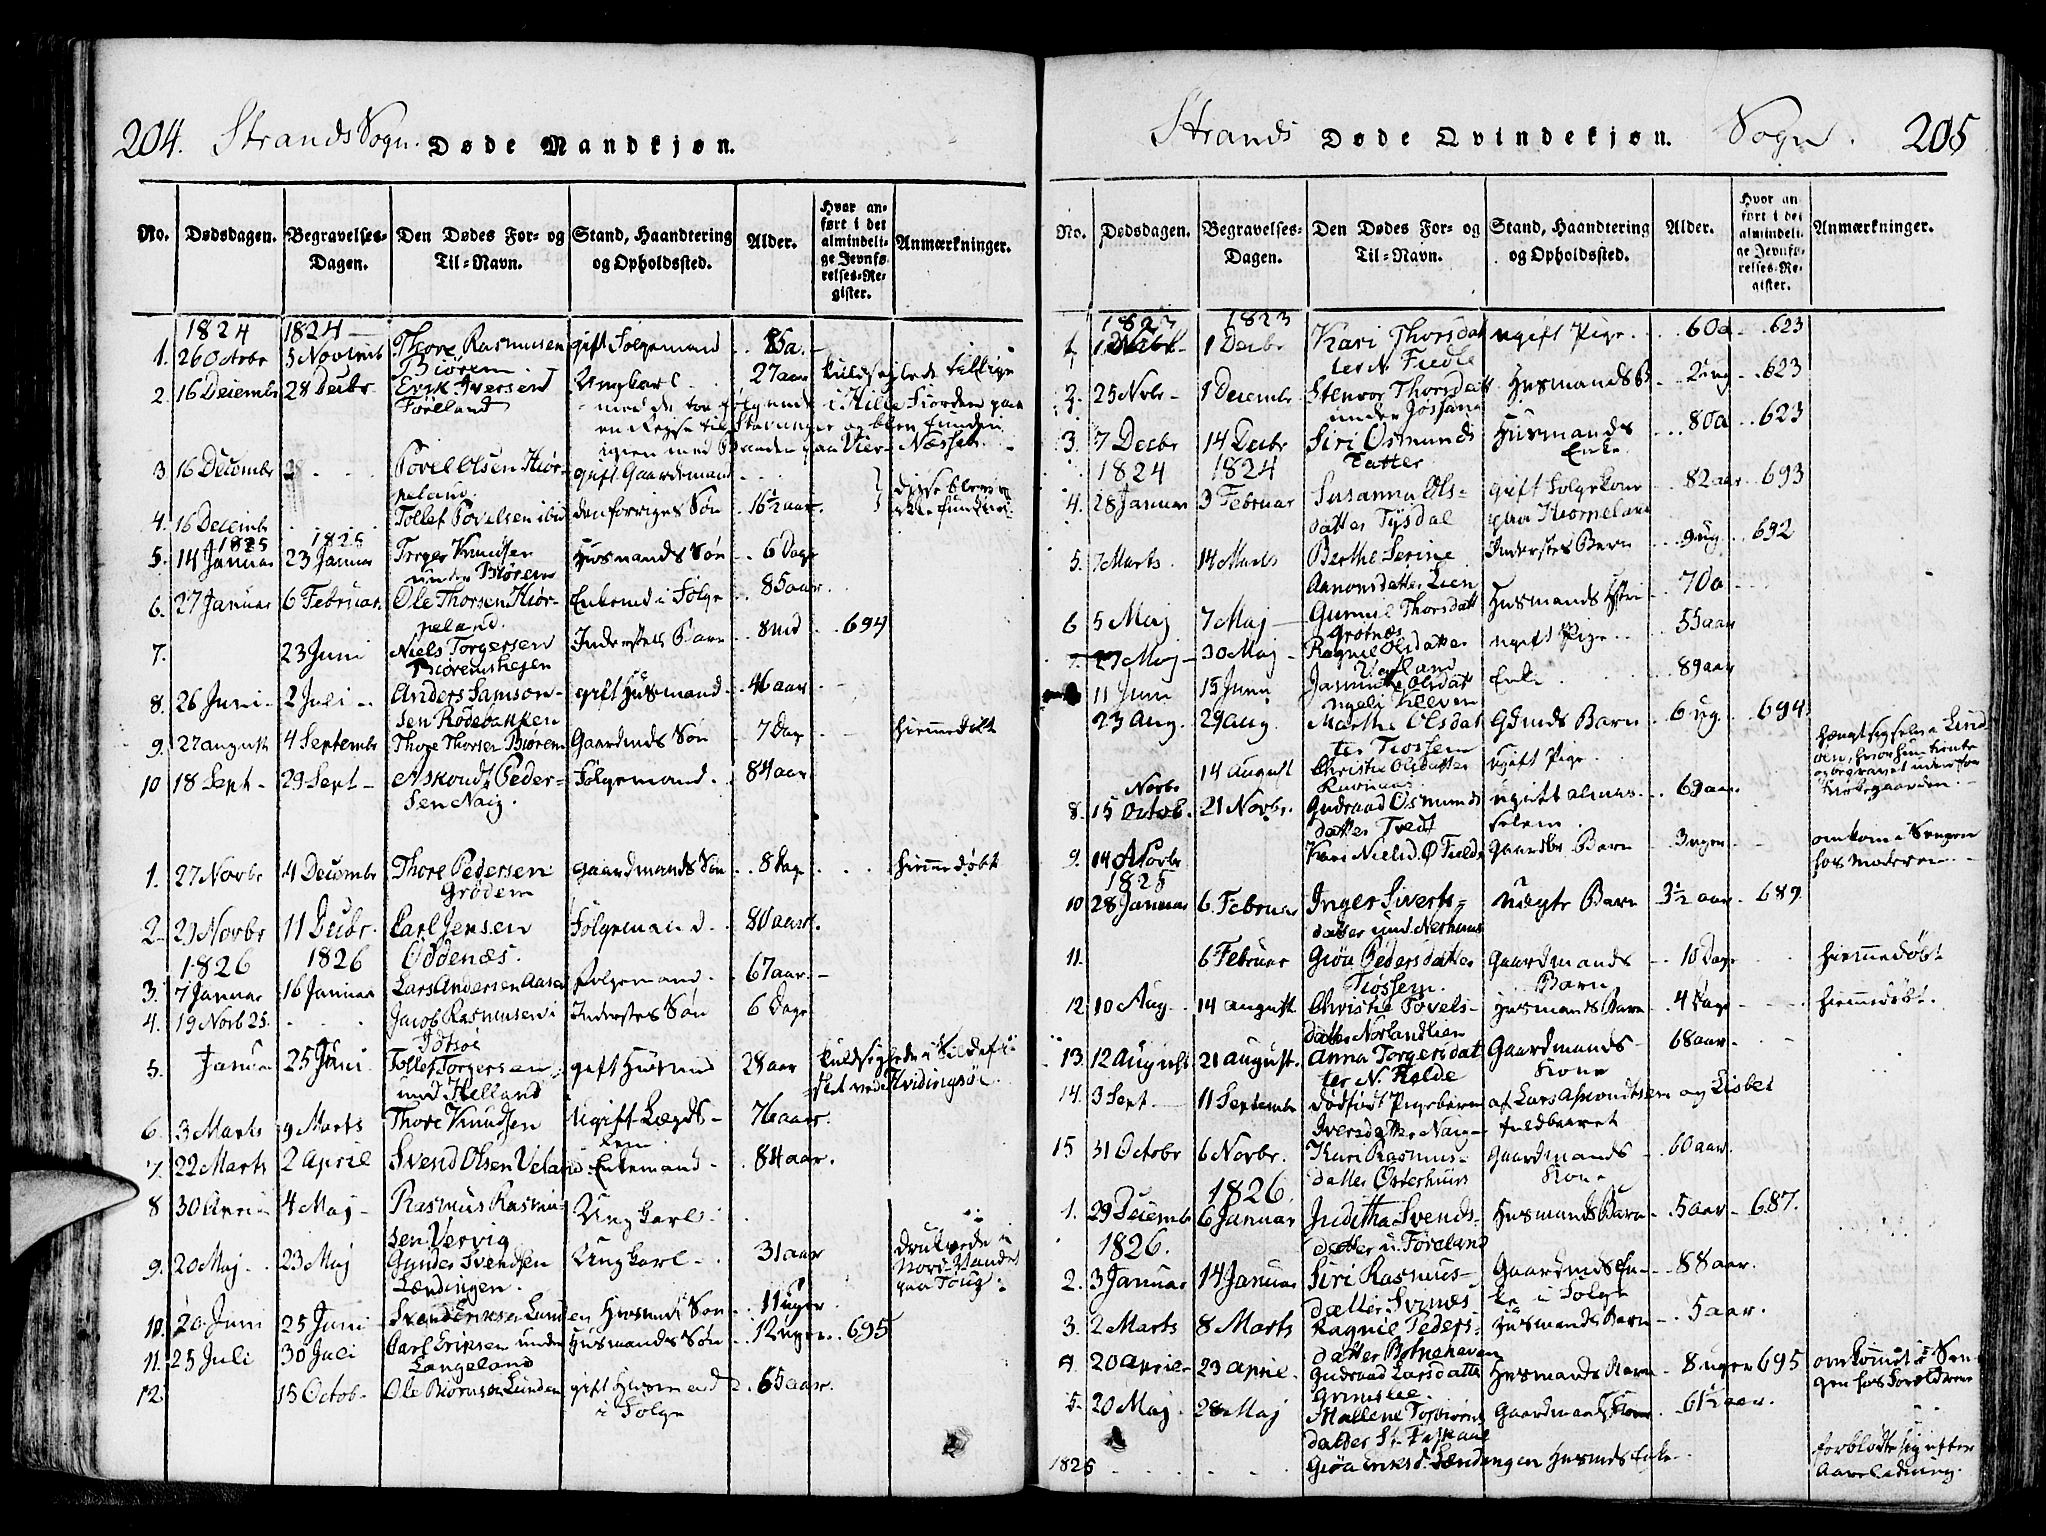 204. Strands Sogn. Døde Mandkjøn.
No. Dødsdagen. Begravelses-Dagen. Den Dødes For- og Til-Navn. Stand, Haandtering og Opholdssted. Alder. Hvor anført i det almindelige Jevnførelses-Register. Anmærkninger.
1824 1824
1. 26 Octbr 5 Novemb Thore Rasmusen Biörem gift Folgemand 85 a.
2. 16 Decembr 28 Decbr Erik Iversen Föreland Ungkarl 27 aar
3 16 Decembr Povel Olsen Kiör-
peland gift Gaardmand
4. 16 Decembr Tollef Povelsen ibid den forriges Søn 16½ aar.
1825 1825
5. 14 Januar 23 Januar Torger Knudsen
under Biörem Huusmands Søn 6 Dage
6. 27 Januar 6 Februar. Ole Thorsen Kiör-
peland. Enkemd i Folge 85 aar
7. 23 Juni Niels Torgersen
Biöremshejen Inderstes Barn 8 md 694
8. 26 Juni 2 Juli Anders Samson-
sen Rödebakken gift Husmand 46 aar
9. 27 august 4 Septembr Thore Thorsen Biörem Gaardmds Søn 7 Dage hiemmedöbt
10 18 Sept 29 Sept Askoudt Peder-
sen Naig. Folgemand. 84 aar
1. 27 Novbr 4 Decembr Thore Pedersen
Grödem gaardmands Søn 8 Dage hiemmedöbt
2. 29 Novbr 11 Decbr. Carl Jensen
Oddenæs. Folgemand 80 aar.
1826 1826
3. 7 Januar 16 Januar Lars Andersen Aasen Folgemand. 67 aar
4. 19 Novb 25. Jacob Rasmusen i
Idtsöe Inderstes Søn 6 Dage
5. Januar 25 Juni Tollef Torgersen
und Helland gift Husmd 28 aar kuldseglede i Sildefi-
sket ved Hvidingsöe.
6. 3 Marts 9 Marts Thore Knudsen Ugift Lægds-
lem 76 aar.
7. 22 Marts 2 April Svend Olsen Veland Enkemand 84 aar.
8 30 April 4 Maj Rasmus Rasmu-
sen Vervig Ungkarl
9. 20 Maj 23 Maj Gunder Svendsen
Lændingen. Ungkarl 31 aar druknede i
Nord-Vandet
paa Toug.
10. 20 Juni 25 Juni Svend Eriksen Lunden Husmds Søn 11 uger
11. 25 Juli 30 Juli Carl Eriksen under
Langeland Husmands Søn 12 uger. 695
12 15 Octob Ole Biörnsen Lunden gift Husmand
i Folge 65 aar.
Strands Døde Qvindekjøn. Sogn. 205
No. Dødsdagen. Begravelses-Dagen. Den Dødes For- og Til-Navn. Stand, Haandtering og Opholdssted. Alder. Hvor anført i det almindelige Jevnførelses-Register. Anmærkninger.
1823 1823
1 Decbr Kari Thorsdat
ter N. Fiedle ugift Pige 60 a 623
2. 25 Novbr 1 Decembr Stenvor Thorsdatt
under Jössang Husmands B 2 ug 623
3. 7 Decbr 14 Decbr Siri Osmunds
Datter Husmands
Enke 80 a 623
1824 1824
4. 28 Januar 3 Februar Susanna Ols-
datter Tysdal gift Folgekone 82 aar 693
5. 7 Marts 14 Marts Berthe Serine
Aanonsdatter Lien Inderstes Barn 9 ug. 692
6 5 Maj 7 Maj Gunnil Thorsdatt
Grötnæs Husmands 70 a
27 Maj 30 Maj Ragnil Olsdatter
Veland ugift Pige 55 aar
11 Juni 15 Juni Olsdat Enke 89 aar
23 Aug. 29 aug. Marthe Olsdat-
ter Tiossem Gdmds Barn 6 ug. 694
14 august Christie Olsdatter Ugift Pige
Novbr
8. 15 Octob. 21 Novbr. Gudraad Osmunds
datter Tvedt ugift almis-
selem 69 aar
9. 14 Novbr Kari Nielsd. Ö Fielde Gaardbr Barn 3 uger omkom i Sengen
hos Moderen
1825
10 28 Januar 6 Februar Inger Siverts-
datter und Nerhuus uægte Barn 3½ aar 689
11. 6 Februar Giöa Pedersdatter
Tiössem. Gaardmands
Barn 10 Dage hiemmedöbt
12 10 Aug. 14 august Christie Povels-
datter Norlandslien Husmands Barn 4 Dage hiemmedöbt.
13. 12 August 21 august. Anna Torgersdat
ter N. Holde Gaardmands
Kone 68 aar
14. 3 Sept 11 Septembr Dödfödt Pigebörn af Lars Asmondtsen og Lisbet
Iversdatter Naig fuldbaaret
15 31 Octobr 6 Novbr. Kari Rasmus-
datter Osterhuus Gaardmands
Kone 60 aar.
1826.
1. 29 Decembr 6 Januar Juditha Svends-
datter u. Föreland Husmands Barn 5 aar 687.
1826.
2. 3 Januar 14 Januar Siri Rasmus-
datter Svines Gaardmds En-
ke i Folge 88 aar.
3. 2 Marts 8 Marts Ragnil Peders-
datter Botnehaven Husmands Barn 5 aar.
4 20 April 23 April. Gudraad Larsdatter Husmands Barn 8 uger 695 omkommet i Sen-
gen hos Forældrene
5. 20 Maj 28 Maj Mallene Torbiörns
datter Gaardmands Kone 61½ aar.
1825 Giöa Eriksd. Lændingen Husmds Enke forblödte sig efter
Aareladning.